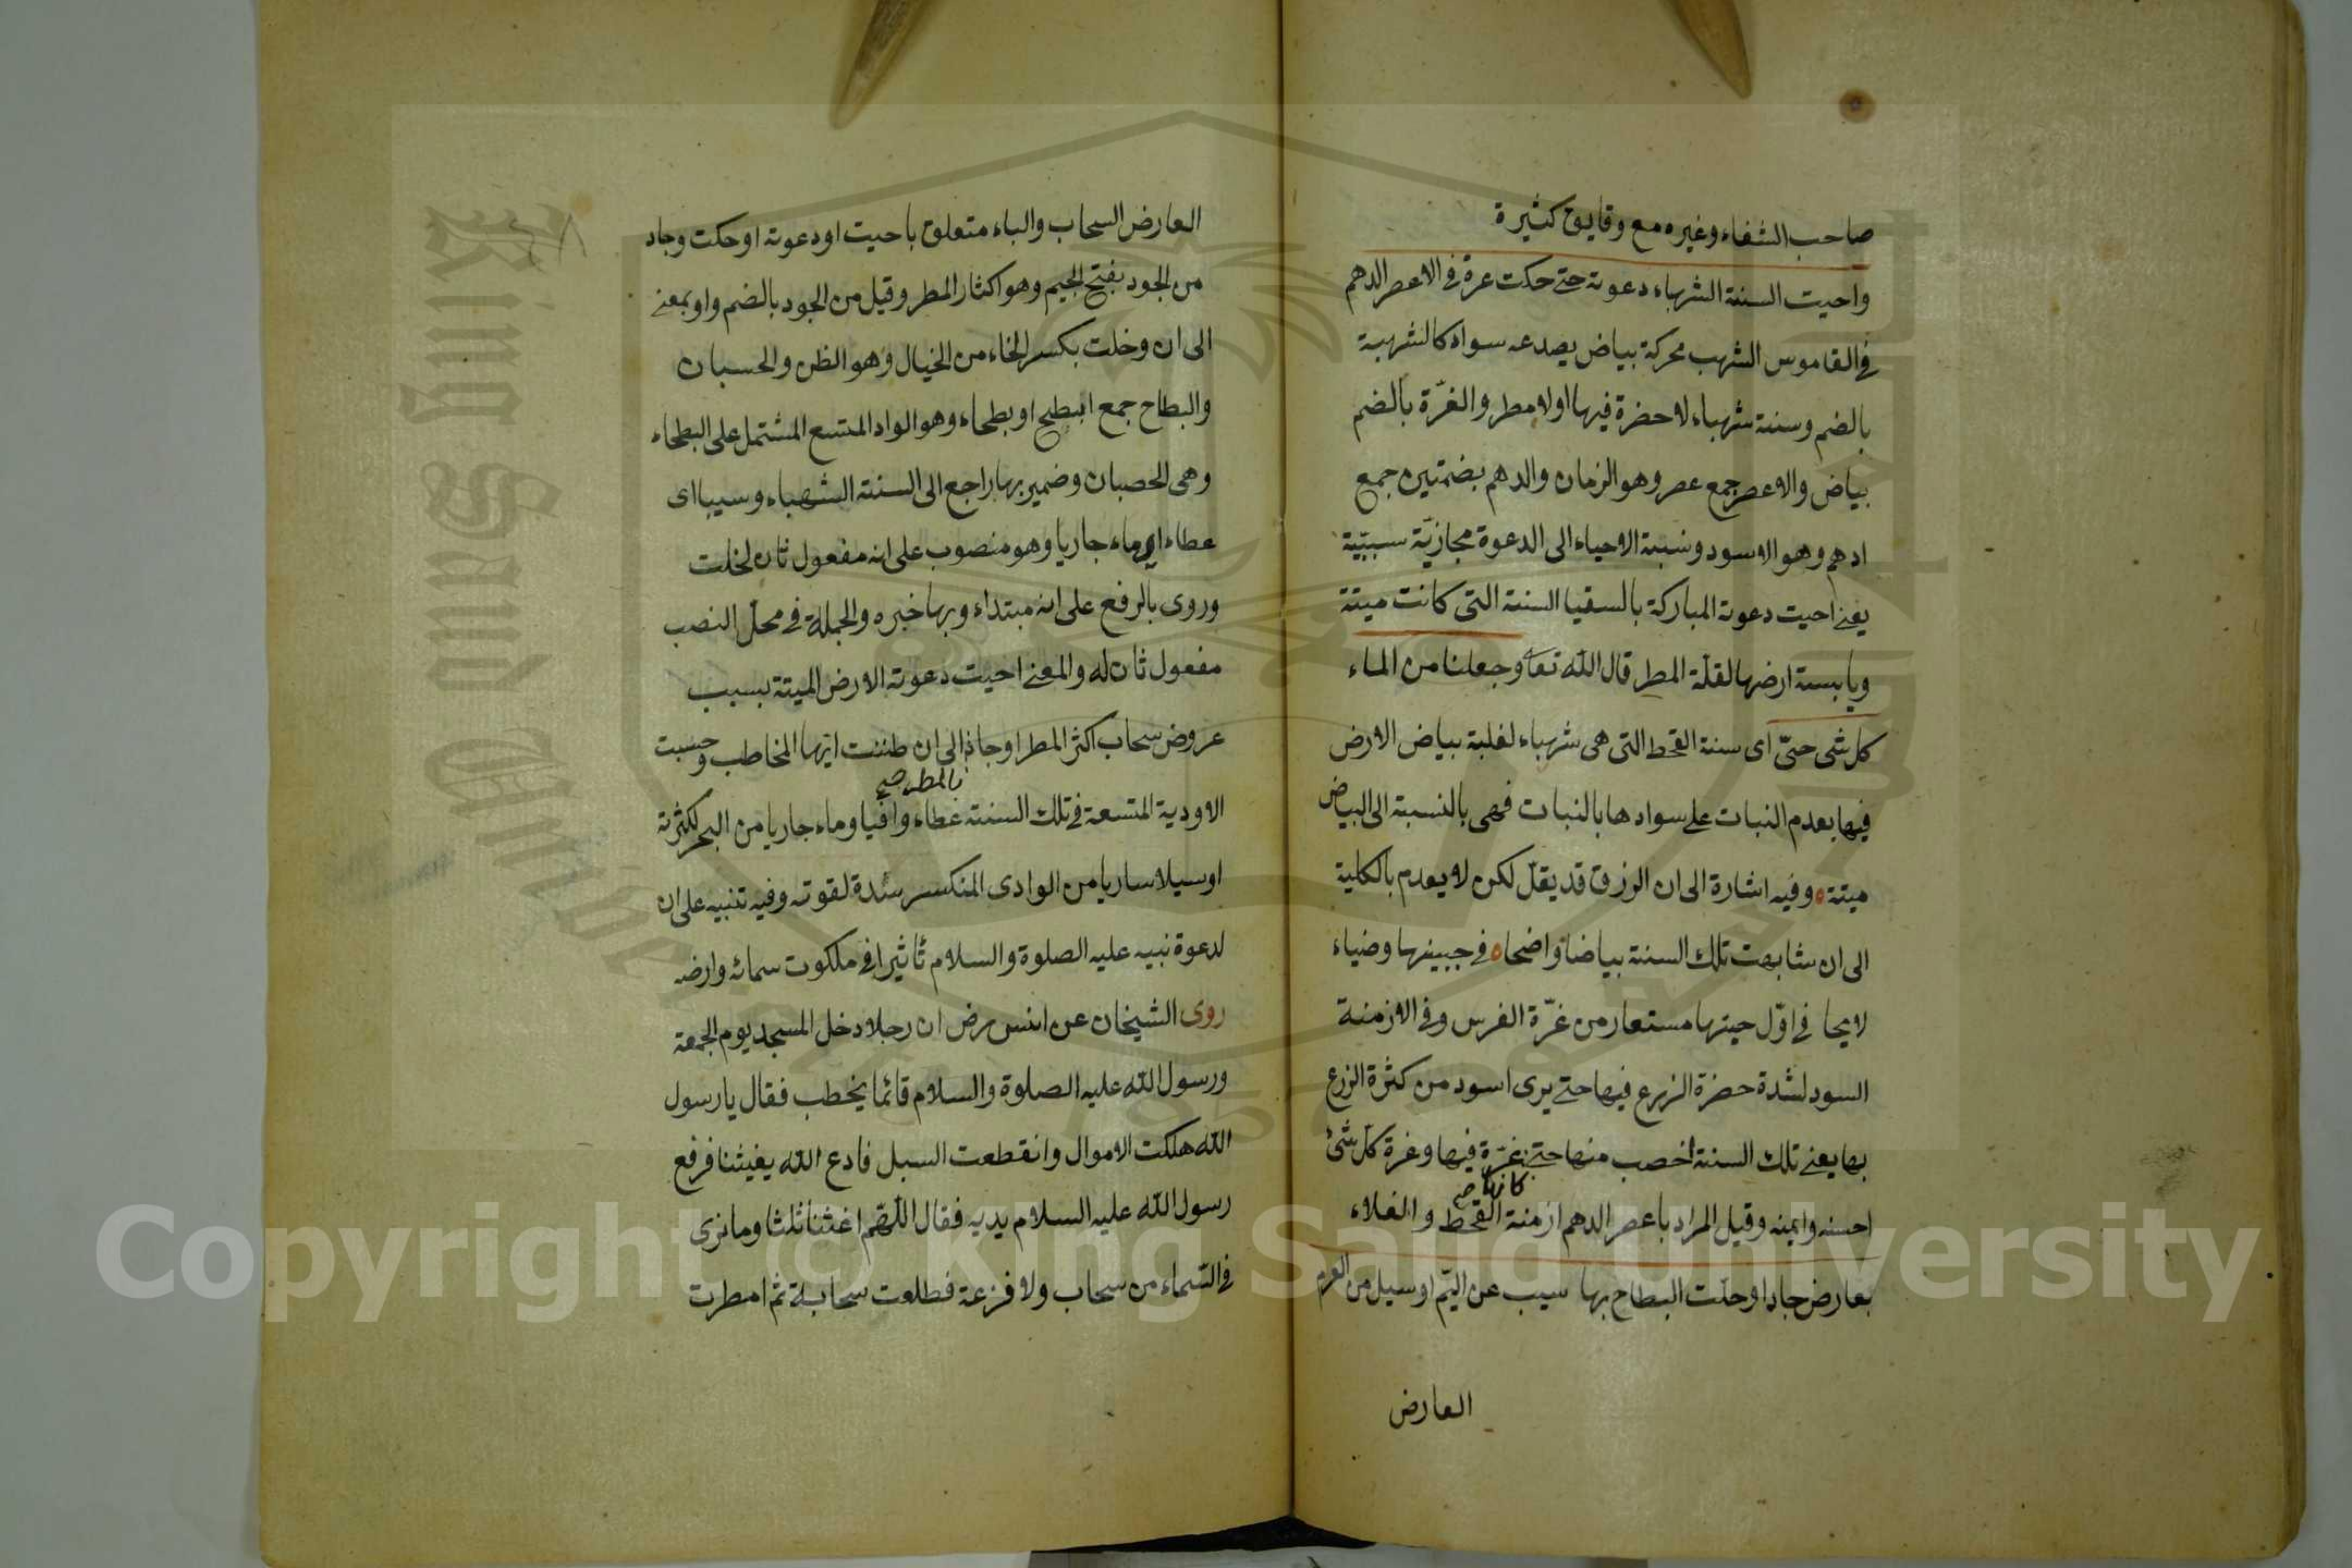 صاحب الشفاء وغيره مع وقايع كثيرة
واحيت السنة الشهباء دعوته حتى حكت غرة في الاعصر الدهم
في القاموس الشهب محركة بياض يصدعه سواد كالشهبة
بالضم وسنة شهباء لاحضرة فيها اولا مطر والغرّة بالضم
بياض والاعصر جمع عصر وهو الزمان والدهم بضمتين جمع
ادهم وهو الاسود ونسبة الاحياء الى الدعوة مجازيّة سببيّة
يعنى احيت دعوته المباركة بالسقيا السنة التى كانت ميتة
ويابسة ارضها لقلّة المطر قال الله تعا وجعلنا من الماء
كل شى حىّ اى سنة القحط التى هى شهباء لغلبة بياض الارض
فيها بعدم النبات على سوادها بالنبات فهى بالنسبة الى البياض
ميتة وفيه اشارة الى ان الرزق قد يقلّ لكن لا يعدم بالكلية
الى ان شابهت تلك السنة بياضا واضحا في جبينها وضياء
لايحا في اوّل حينها مستعار من غرّة الفرس وفي الازمنة
السود لشدة حضرة الزرع فيها حتى يرى اسود من كثرة الزرع
بها يعنى تلك السنة اخصب منها حتى غرّة فيها وغرة كل شئ
كانها صح
احسنه وايمنه وقيل المراد باعصر الدهم ازمنة القحط والغلاء
بعارض جاد او خلت البطاح بها سيب عن اليّم او سيل من العرم
العارض
العارض السحاب والباء متعلق باحيت او دعوته او حكت وجاد
من الجود بفتح الجيم وهو اكثار المطر وقيل من الجود بالضم واو بمعنى
الى ان وخلت بكسر الخاء من الخيال وهو الظن والحسبان
والبطاح جمع ابطح او بطحاء وهو الواد المتسع المشتمل على البطحاء
وهى الحصبان وضمير بها راجع الى السنة الشهباء وسيبا اى
عطاء اى ماء جاريا وهو منصوب على انه مفعول ثان لخلت
وروى بالرفع على انه مبتداء وبها خبره والجملة في محلّ النصب
مفعول ثان له والمعنى احيت دعوته الارض الميتة بسبب
عروض سحاب اكثر المطر او جاد الى ان ظننت ايّها المخاطب وحسبت
بالمطر صح
الاودية المتسعة في تلك السنة عطاء وافيا وماء جاريا من البحر لكثرته
اوسيلا ساريا من الوادى المنكسر سدة لقوته وفيه تنبيه على ان
لدعوة نبيه عليه الصلوة والسلام تأثيرا في ملكوت سمائه وارضه
روى الشيخان عن انس رض ان رجلا دخل المسجد يوم الجمعة
ورسول الله عليه الصلوة والسلام قائما يخطب فقال يا رسول
الله هلكت الاموال وانقطعت السبل فادع الله يغيثنا فرفع
رسول الله عليه السلام يديه فقال اللّهم اغثنا ثلثا وما نرى
في السّماء من سحاب ولا قزعة فطلعت سحابة ثم امطرت
Copyright © King Saud University